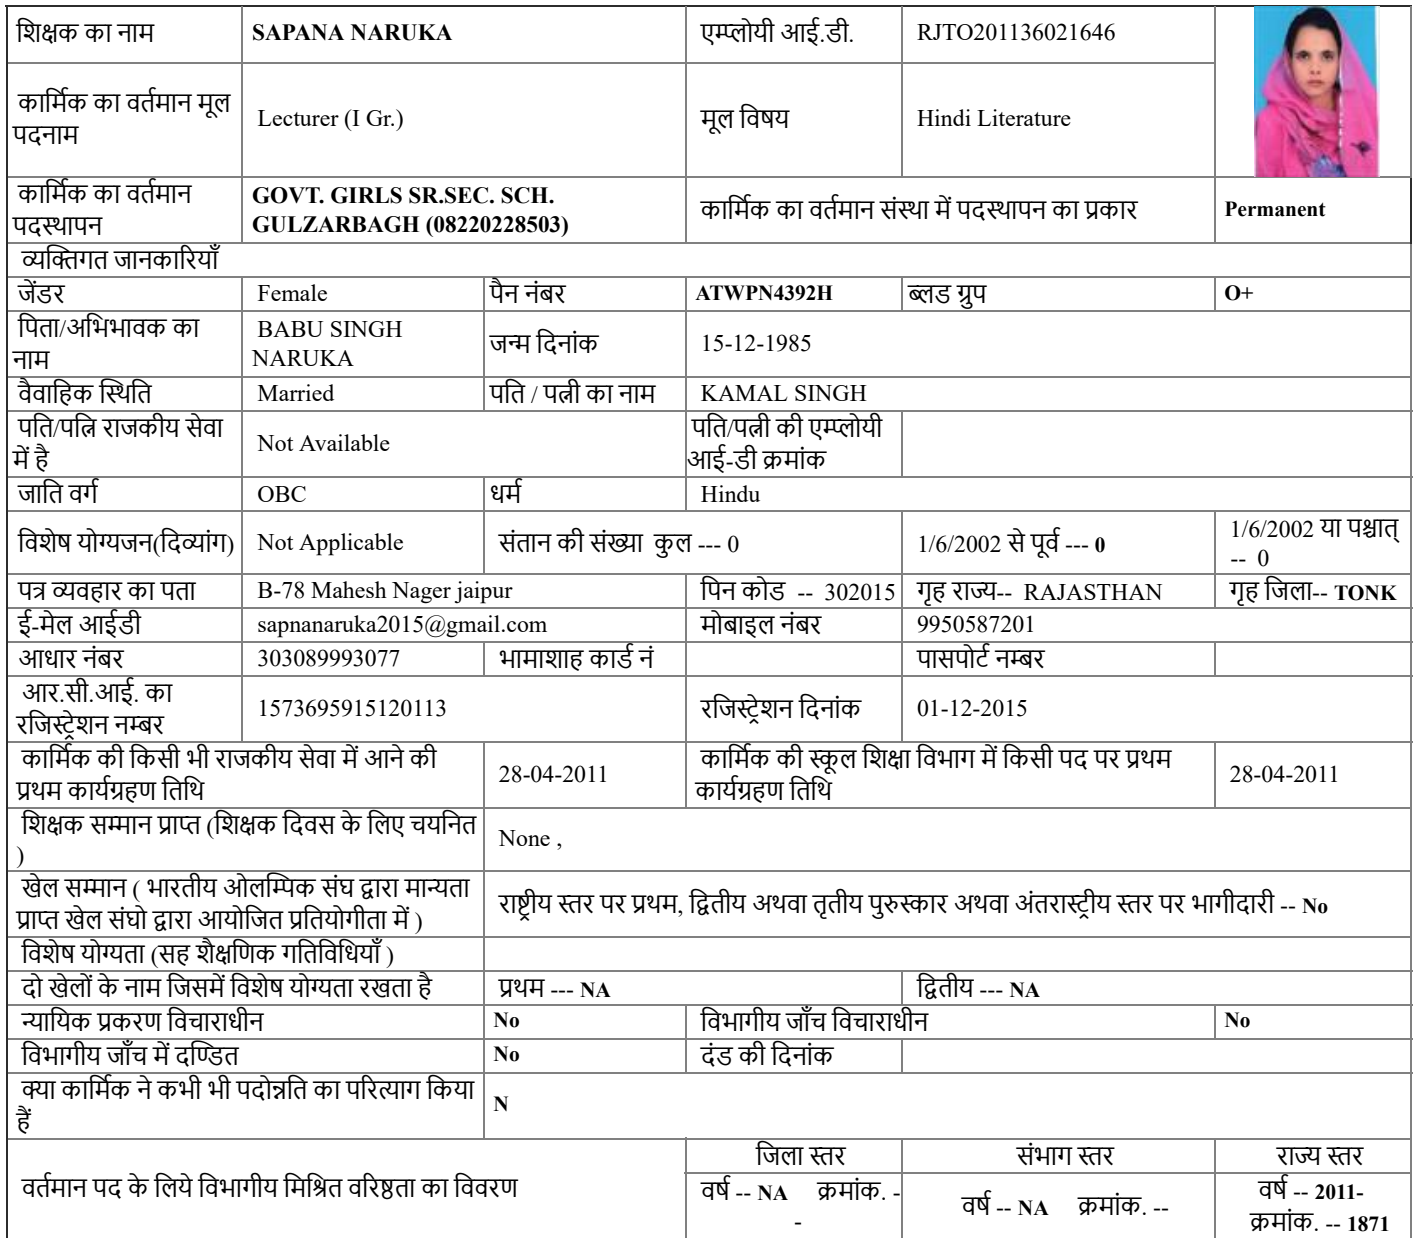 शिक्षक का नाम SAPANA NARUKA एम्प्लोयी आई.डी. RJTO201136021646
कार्मिक का वर्तमान मूल
पदनाम Lecturer (I Gr.) मूल विषय Hindi Literature
कार्मिक का वर्तमान
पदस्थापन GOVT. GIRLS SR.SEC. SCH.
GULZARBAGH (08220228503) कार्मिक का वर्तमान संस्था में पदस्थापन का प्रकार Permanent
व्यक्तिगत जानकारियाँ
जेंडर Female पैन नंबर ATWPN4392H ब्लड ग्रुप O+
पिता/अभिभावक का
नाम BABU SINGH
NARUKA जन्म दिनांक 15-12-1985
वैवाहिक स्थिति Married पति / पत्नी का नाम KAMAL SINGH
पति/पत्नि राजकीय सेवा
में है Not Available पति/पत्नी की एम्प्लोयी
आई-डी क्रमांक
जाति वर्ग OBC धर्म Hindu
विशेष योग्यजन(दिव्यांग) Not Applicable संतान की संख्या कुल --- 0 1/6/2002 से पूर्व --- 0 1/6/2002 या पश्चात्
-- 0
पत्र व्यवहार का पता B-78 Mahesh Nager jaipur पिन कोड -- 302015 गृह राज्य-- RAJASTHAN गृह जिला-- TONK
ई-मेल आईडी sapnanaruka2015@gmail.com मोबाइल नंबर 9950587201
आधार नंबर 303089993077 भामाशाह कार्ड नं पासपोर्ट नम्बर
आर.सी.आई. का
रजिस्ट्रेशन नम्बर 1573695915120113 रजिस्ट्रेशन दिनांक 01-12-2015
कार्मिक की किसी भी राजकीय सेवा में आने की
प्रथम कार्यग्रहण तिथि 28-04-2011 कार्मिक की स्कूल शिक्षा विभाग में किसी पद पर प्रथम
कार्यग्रहण तिथि 28-04-2011
शिक्षक सम्मान प्राप्त (शिक्षक दिवस के लिए चयनित
) None ,
खेल सम्मान ( भारतीय ओलम्पिक संघ द्वारा मान्यता
प्राप्त खेल संघो द्वारा आयोजित प्रतियोगीता में ) राष्ट्रीय स्तर पर प्रथम, द्वितीय अथवा तृतीय पुरुस्कार अथवा अंतरास्ट्रीय स्तर पर भागीदारी -- No
विशेष योग्यता (सह शैक्षणिक गतिविधियाँ )
दो खेलों के नाम जिसमें विशेष योग्यता रखता है प्रथम --- NA द्वितीय --- NA
न्यायिक प्रकरण विचाराधीन No विभागीय जाँच विचाराधीन No
विभागीय जाँच में दण्डित No दंड की दिनांक
क्या कार्मिक ने कभी भी पदोन्नति का परित्याग किया
हैं N
वर्तमान पद के लिये विभागीय मिश्रित वरिष्ठता का विवरण जिला स्तर संभाग स्तर राज्य स्तर
वर्ष -- NA क्रमांक. -
- वर्ष -- NA क्रमांक. -- वर्ष -- 2011-
क्रमांक. -- 1871